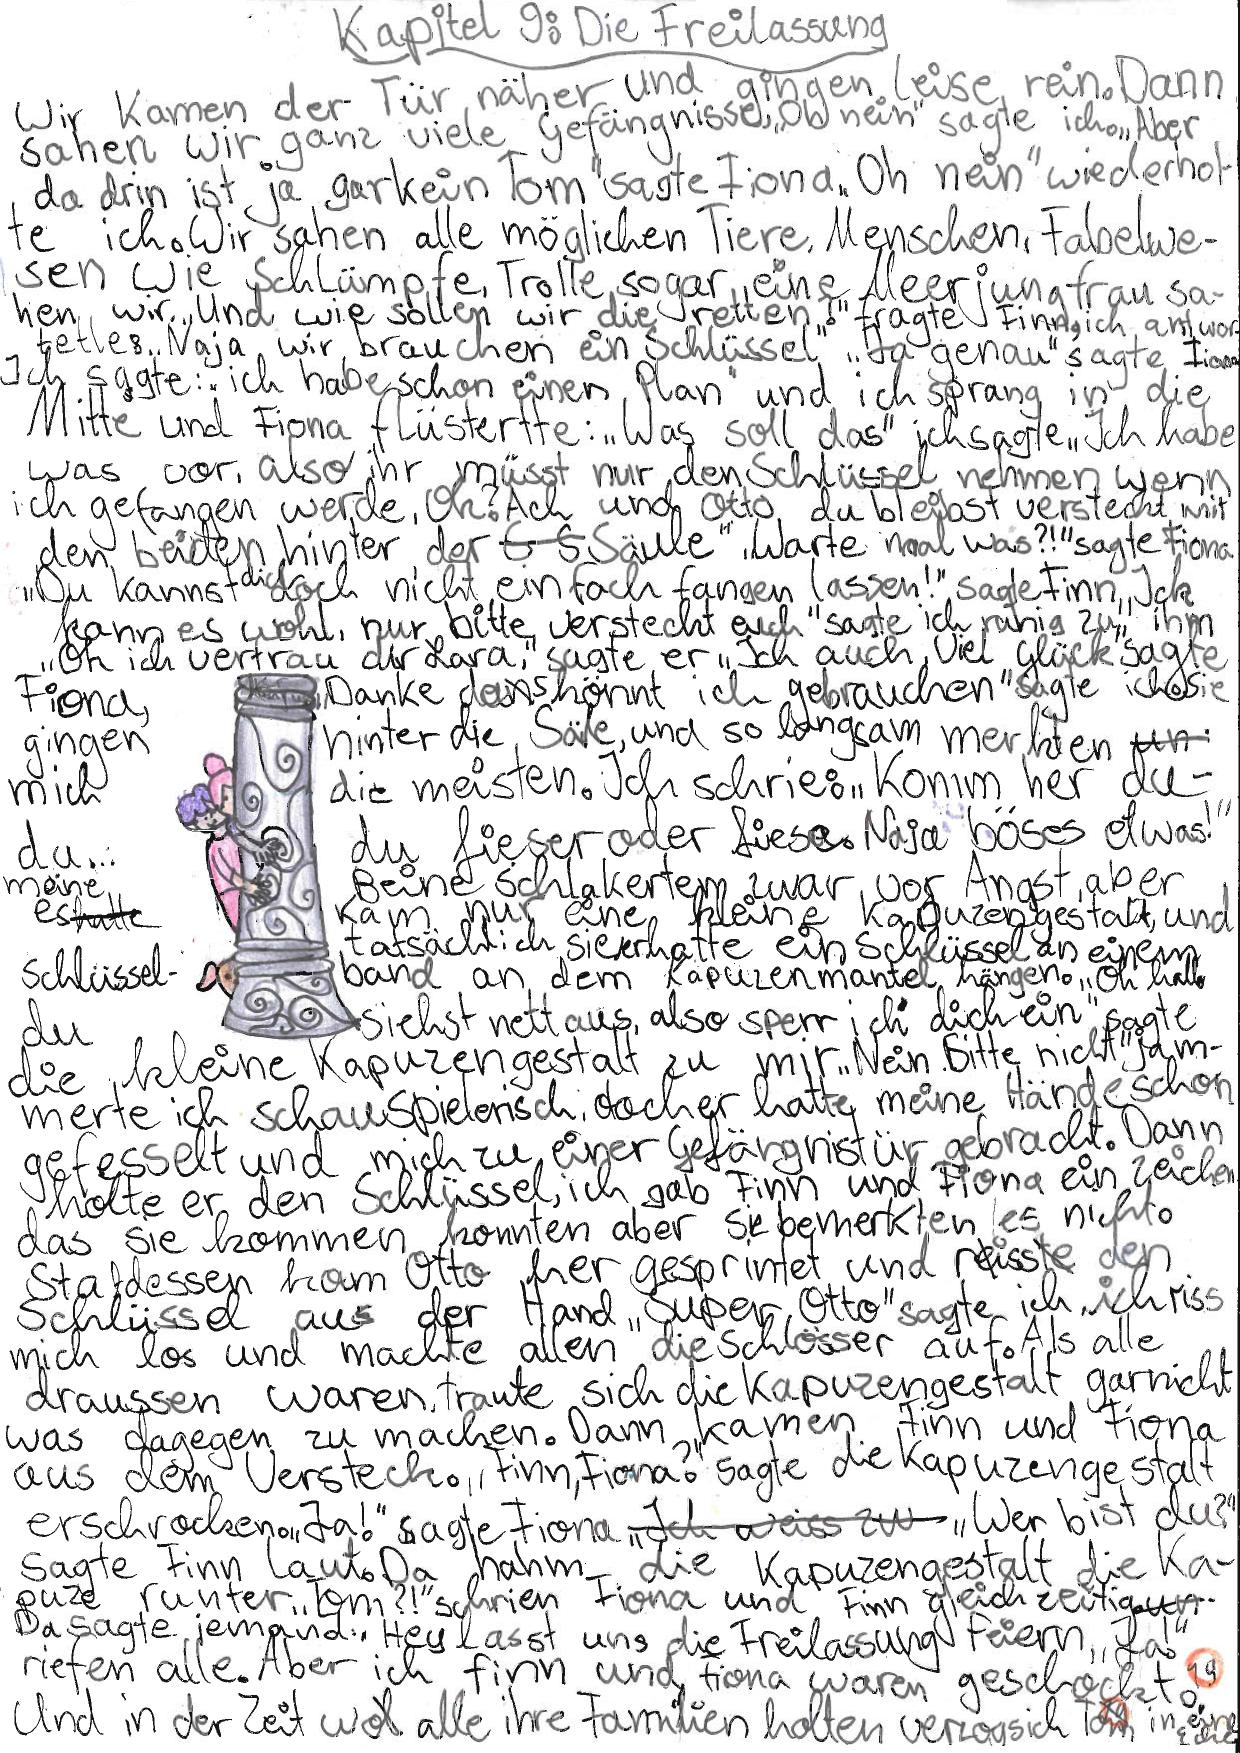 Kapitel 9: Die Freilassung
Wir kamen der Tür näher und gingen leise rein. Dann
sahen wir ganz viele Gefängnisse. „Oh nein" sagte ich. „Aber
da drin ist ja garkein Tom" sagte Fiona. „Oh nein" wiederhol-
te ich. Wir sahen alle möglichen Tiere, Menschen, Fabelwe-
sen wie Schlümpfe, Trolle, sogar eine Meerjungfrau sa-
hen wir. „Und wie sollen wir die retten?" fragte Finn, ich antwor-
tete: „Naja, wir brauchen ein Schlüssel" „Ja genau" sagte Fiona
Ich sagte: „ich habe schon einen Plan" und ich sprang in die
Mitte und Fiona flüstertte: „Was soll das" ich sagte „Ich habe
was vor, also ihr müsst nur den Schlüssel nehmen wenn
ich gefangen werde, Ok? Ach und Otto, du bleibst versteckt mit
den beiden hinter der Säule" „Warte mal was?!" sagte Fiona
„Du kannst dich doch nicht einfach fangen lassen!" sagte Finn „Ich
kann es wohl, nur bitte, versteckt euch" sagte ich ruhig zu ihm
„Oh ich vertrau dir Lara," sagte er „Ich auch, Viel Glück" sagte
Fiona, „Danke dass könnt ich gebrauchen" sagte ich. sie
gingen hinter die Säle, und so langsam merkten
mich die meisten. Ich schrie: „Komm her du-
du... du fieser oder fiese. Naja böses etwas!"
meine Beine schlakertem zwar vor Angst, aber
es kam nur eine kleine Kapuzengestalt, und
tatsächlich sie/er hatte ein Schlüssel an einem
schlüssel- band an dem Kapuzenmantel hängen. „Oh hallo
du siehst nett aus, also sperr ich dich ein" sagte
die kleine Kapuzengestalt zu mir. „Nein Bitte nicht" jäm-
merte ich schauspielerisch, doch er hatte meine Hände schon
gefesselt und mich zu einer Gefängnistür gebracht. Dann
holte er den Schlüssel, ich gab Finn und Fiona ein zeichen
das sie kommen konnten aber sie bemerkten es nicht.
Statdessen kam Otto her gesprintet und reisste den
Schlüssel aus der Hand „Super Otto" sagte ich, ich riss
mich los und machte allen die Schlösser auf. Als alle
draussen waren, traute sich die Kapuzengestalt garnicht
was dagegen zu machen. Dann kamen Finn und Fiona
aus dem Versteck. „Finn, Fiona?" sagte die Kapuzengestalt
erschrocken. „Ja!" sagte Fiona „Ich weiss zu „Wer bist du?"
sagte Finn laut. Da nahm die Kapuzengestalt die Ka-
puze runter „Tom?!" schrien Fiona und Finn gleichzeitig
Da sagte jemand: „Hey lasst uns die Freilassung Feiern „Ja!"
riefen alle. Aber ich finn und fiona waren geschockt.
Und in der Zeit wo alle ihre Familien holten verzog sich Tom in eine
Ecke
19